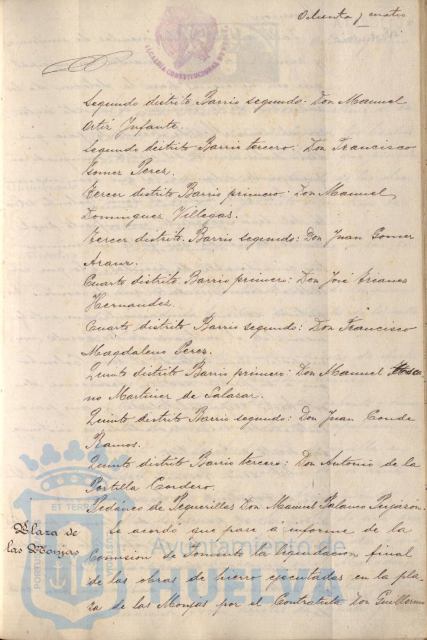 Ochenta y cuatro
ALCALDIA CONSTITUCIONAL DE HUELVA
Segundo distrito Barrio segundo: Don Manuel
Ortiz Infante.
Segundo distrito Barrio tercero: Don Francisco
Gomez Perez.
Tercer distrito Barrio primero: Don Manuel
Dominguez Villegas.
Tercer distrito Barrio segundo: Don Juan Gomez
Arauz.
Cuarto distrito Barrio primero: Don José
Hernandez.
Cuarto distrito Barrio segundo: Don Francisco
Magdaleno Perez.
Quinto distrito Barrio primero: Don Manuel
no Martinez de Salazar.
Quinto distrito Barrio segundo: Don Juan Conde
Ramos.
Quinto distrito Barrio tercero: Don Antonio de la
Portilla Cordero.
Pedáneo de Peguerillas Don Manuel Polanco
Plaza de
las Monjas
Se acordó que pase a informe de la
Comision de Fomento la liquidacion final
de las obras de hierro ejecutadas en la pla-
za de las Monjas por el Contratista Don Guillermo
Ayuntamiento de
HUELVA